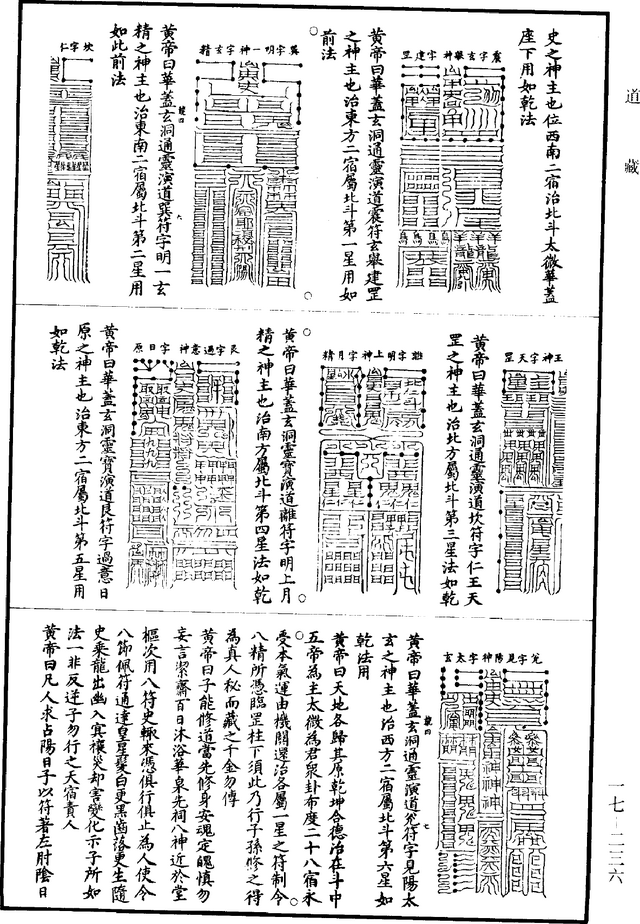 道藏
史之神主也位西南二宿治北斗太微華蓋
座下用如乾法
震字玄舉神字建罡
黃帝曰華蓋玄洞通靈演道震符玄舉建罡
之神主也治東方二宿屬北斗第一星用如
前法
巽字明一神字玄精
黃帝曰華蓋玄洞通靈演道巽符字明一玄
精之神主也治東南二宿屬北斗第二星用
如此前法
坎字仁
王神字天罡
黃帝曰華蓋玄洞通靈演道坎符字仁王天
罡之神主也治北方屬北斗第三星法如乾
離字明上神字月精
黃帝曰華蓋玄洞靈寶演道離符字明上月
精之神主也治南方屬北斗第四星法如乾
艮字過意神字日原
黃帝曰華蓋玄洞靈寶演道艮符字過意日
原之神主也治東方二宿屬北斗第五星用
如乾法
兌字見陽神字太玄
黃帝曰華蓋玄洞通靈演道兌符字見陽太
玄之神主也治西方二宿屬北斗第六星如
乾法用
黃帝曰天地各歸其原乾坤合德治在斗中
五帝為主太微為君眾卦布度二十八宿永
受本氣運由機關還治各屬一星之符制令
八精所憑臨罡柱下須此乃行子孫修之得
為真人秘而藏之千金勿傳
黃帝曰子能修道當先修身安魂定魄慎勿
妄言潔齋百日沐浴華泉先祠八神近於堂
樞次用八符史輒來憑俱行俱止為人使令
八節佩符通達皇星髮白更黑齒落更生隨
史乘龍出幽入冥禳災却害變化示子所如
法一非反逆子勿行之天宿貴人
黃帝曰凡人求占陽日子以符著左肘陰日
一七—二三六